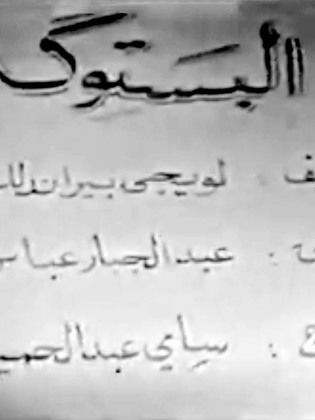 البستوگة
ف : لويجي بيراندلل
ة : عبد الجبار عباس
ج : سامي عبد الحميـ